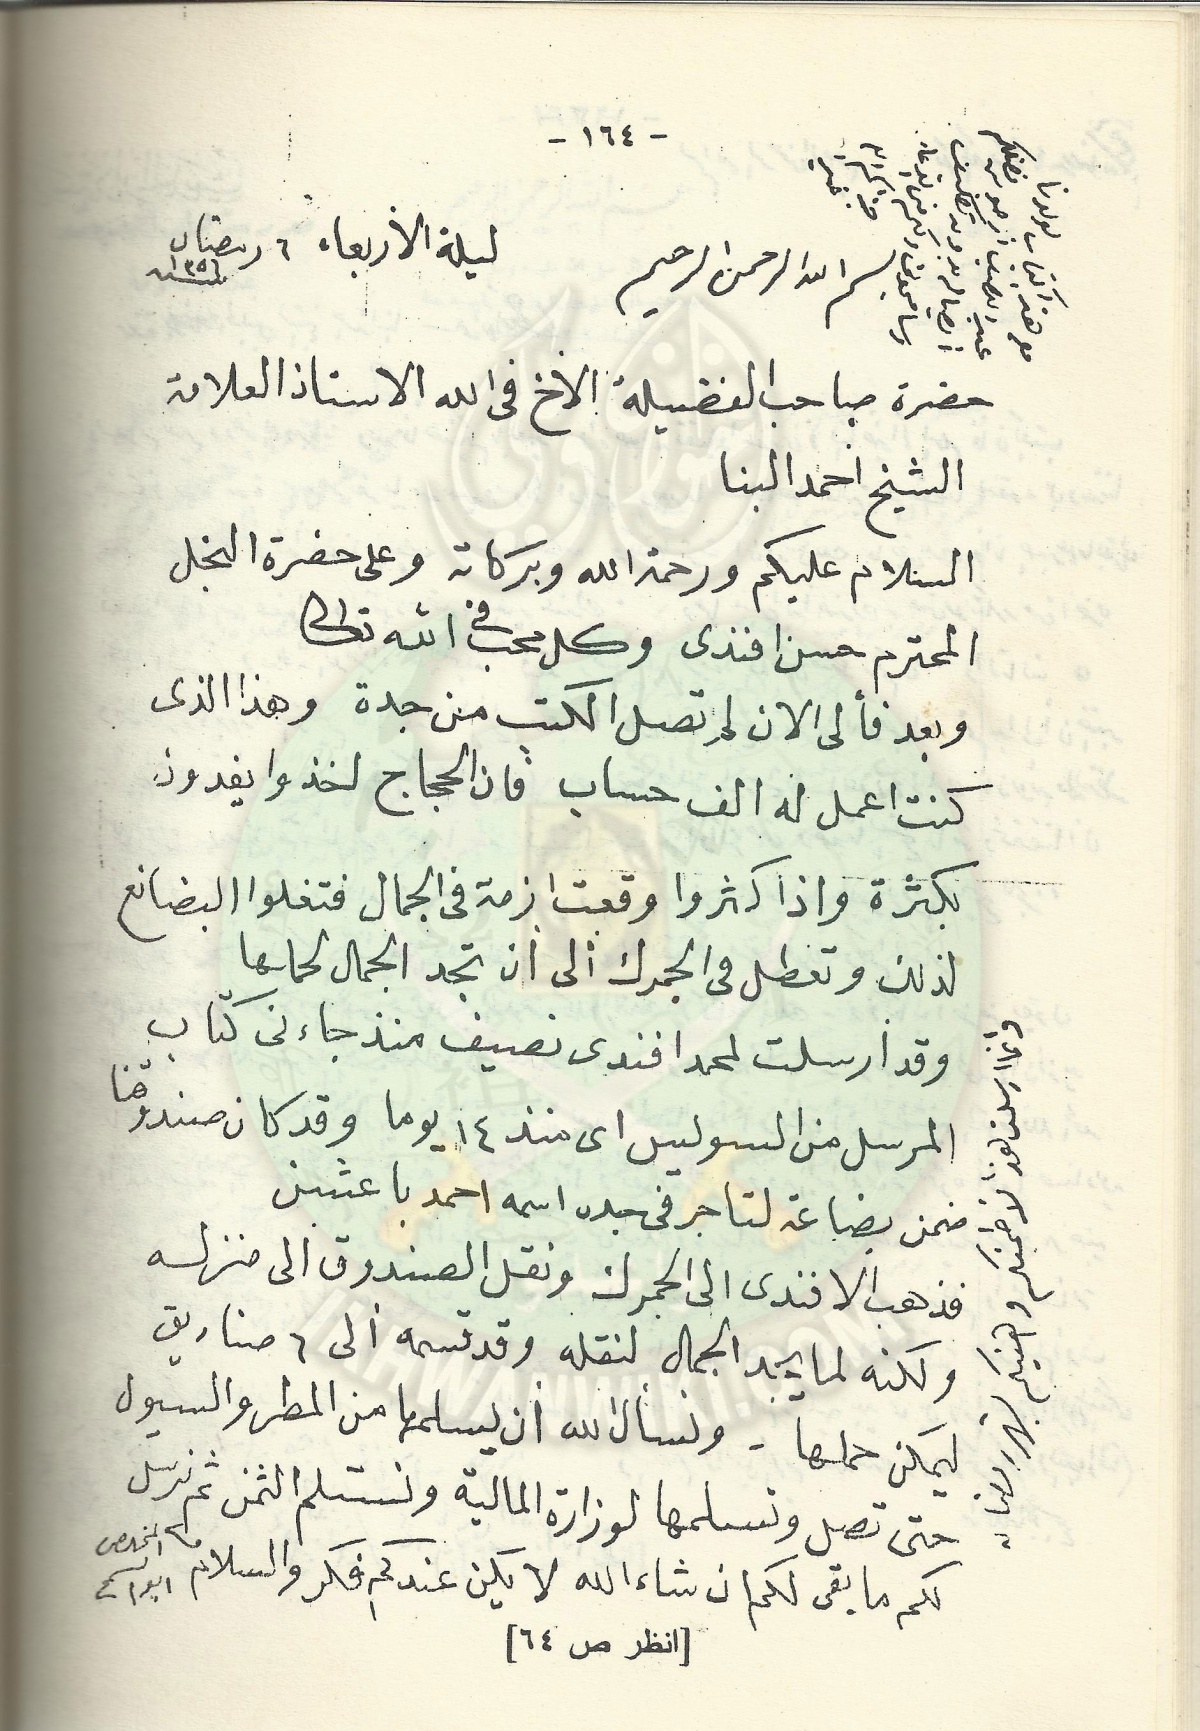 - ١٦٤ -
ليلة الأربعاء ٦ رمضان
سنة ١٣٥٦
بسم الله الرحمن الرحيم
حضرة صاحب الفضيلة الأخ في الله الاستاذ العلامة
الشيخ أحمد البنا
السلام عليكم ورحمة الله وبركاته وعلى حضرة النجل
المحترم حسن افندى وكل محب في الله تعالى
وبعد فألى الان لم تصل الكتب من جدة وهذا الذى
كنت اعمل له الف حساب فان الحجاج اخذوا يفدون
بكثرة واذا كثروا وقعت ازمة فى الجمال فتغلوا البضائع
لذلك وتعطل فى الجمرك ألى أن تجد الجمال لحملها
وقد أرسلت لمحمد افندى نصيف منذ جاءنى كتاب
المرسل من السوليس اى منذ ١٤ يوما وقد كان صندوقنا
ضمن بضاعة لتاجر فى جده اسمه احمد باعشن
فذهب الافندى الى الجمرك ونقل الصندوق الى منزله
ولكنه لما يجد الجمال لنقله وقد قسمه ألى ٦ صناديق
ليمكن حملها - ونسأل الله أن يسلمها من المطر والسيول
حتى تصل ونسلمها لوزارة المالية ونستلم الثمن ثم نرسل
لكم ما بقى لكم ان شاء الله لا يكن عندكم فكر والسلام
المخلص
ابو السمح
وإنما ارسلنا هذا لأطمنكم واهنيكم بشهر رمضان
[انظر ص ٦٤]